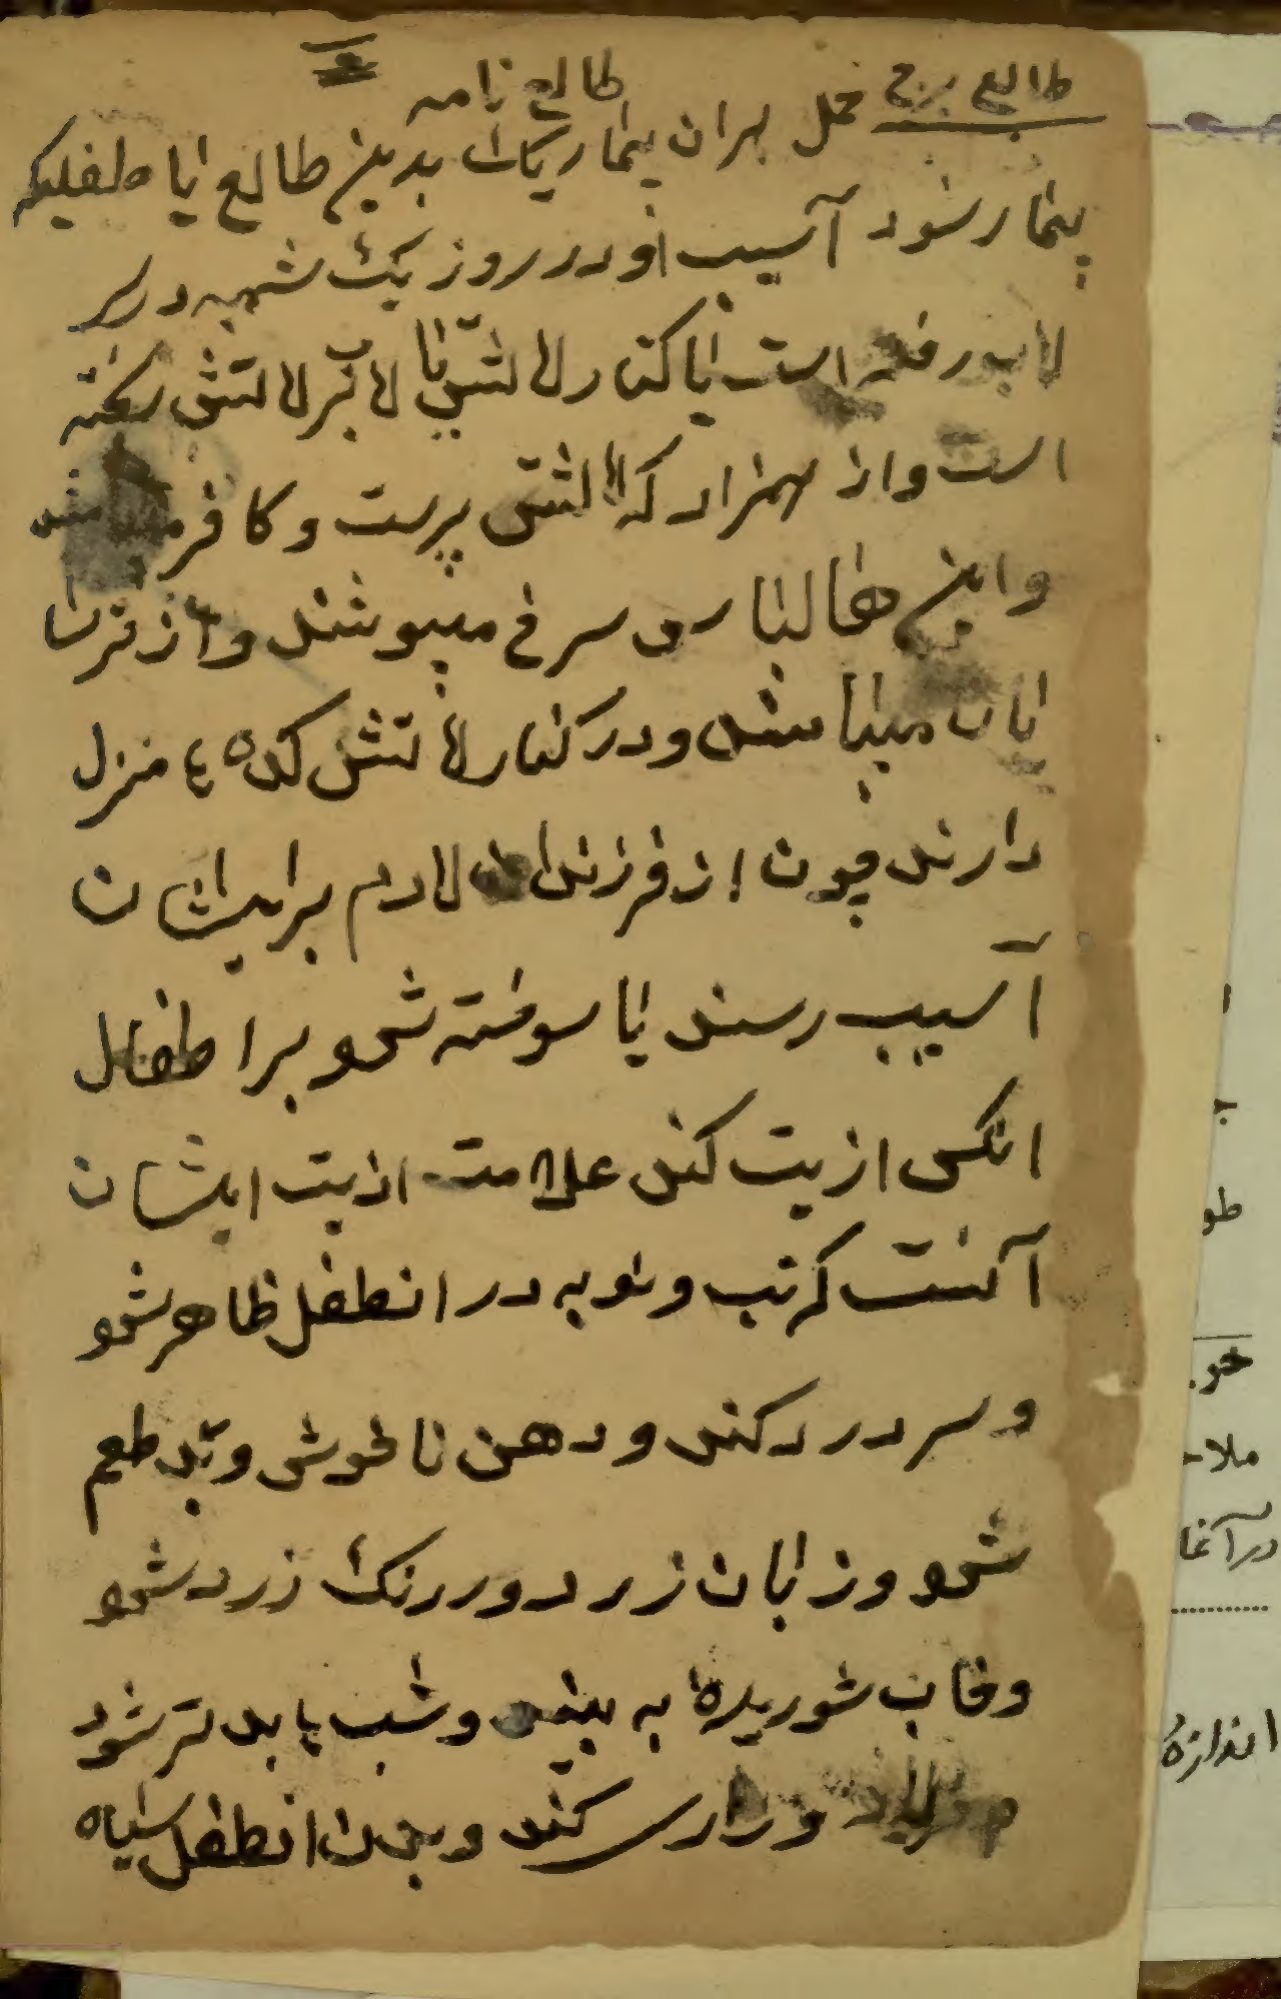 طالع نامه
طالع برج حمل بران بیماریکه بدین طالع یا طفلیکه
بیمار شود آسیب او در روز یک شنبه در سر
لابه رفته است یا کنار آتش یا آب بر آتش ریخته
است و از همزاد که آتش پرست و کافر میباشد
واین ها لباس سرخ میپوشند و از
میباشند و در کنار آتش کده ها منزل
دارند چون از فرزندان آدم برایشان
آسیب رسند یا سوخته شود بر اطفال
انکس ازیت کند علامت اذیت ایشان
آنست که تب و نوبه در انطفل ظاهر شود
و سر درد کند و دهن ناخوش و بد طعم
شود و زبان زرد و رنک زرد شود
وخاب شوریده به بیند و شب ها بدتر شود
و زاری کند و بدن انطفل سیاه